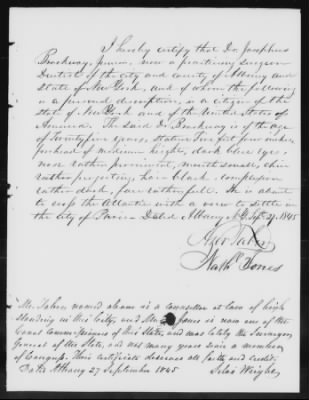 I hereby certify that Dr. Josephus
Brockway, junr., now a practicing surgeon
Dentist of the city and county of Albany and
State of New York, and of whom the following
is a personal description, is a citizen of the
state of New York and of the United States of
America. The said Dr. Brockway is of the age
of twenty years, stature five feet four inches,
forehead of medium height, dark blue eyes,
nose rather prominent, mouth small, chin
rather projecting, hair black, complexion
rather dark, face rather full. He is about
to cross the Atlantic with a view to settle in
the city of Paris - Dated Albany N.Y. Sept. 27, 1845
Azor Taber
Nathl. Jones
Mr. Taber, named above is a counsellor at law of high
standing in this City, and Mr. Jones is now one of the
Canal Commissioners of this State, and was lately the Surveyor
General of this State, and not many years since a member
of Congress. Their certificate deserves all faith and credit.
Date Albany 27 September 1845
Silas Wright,